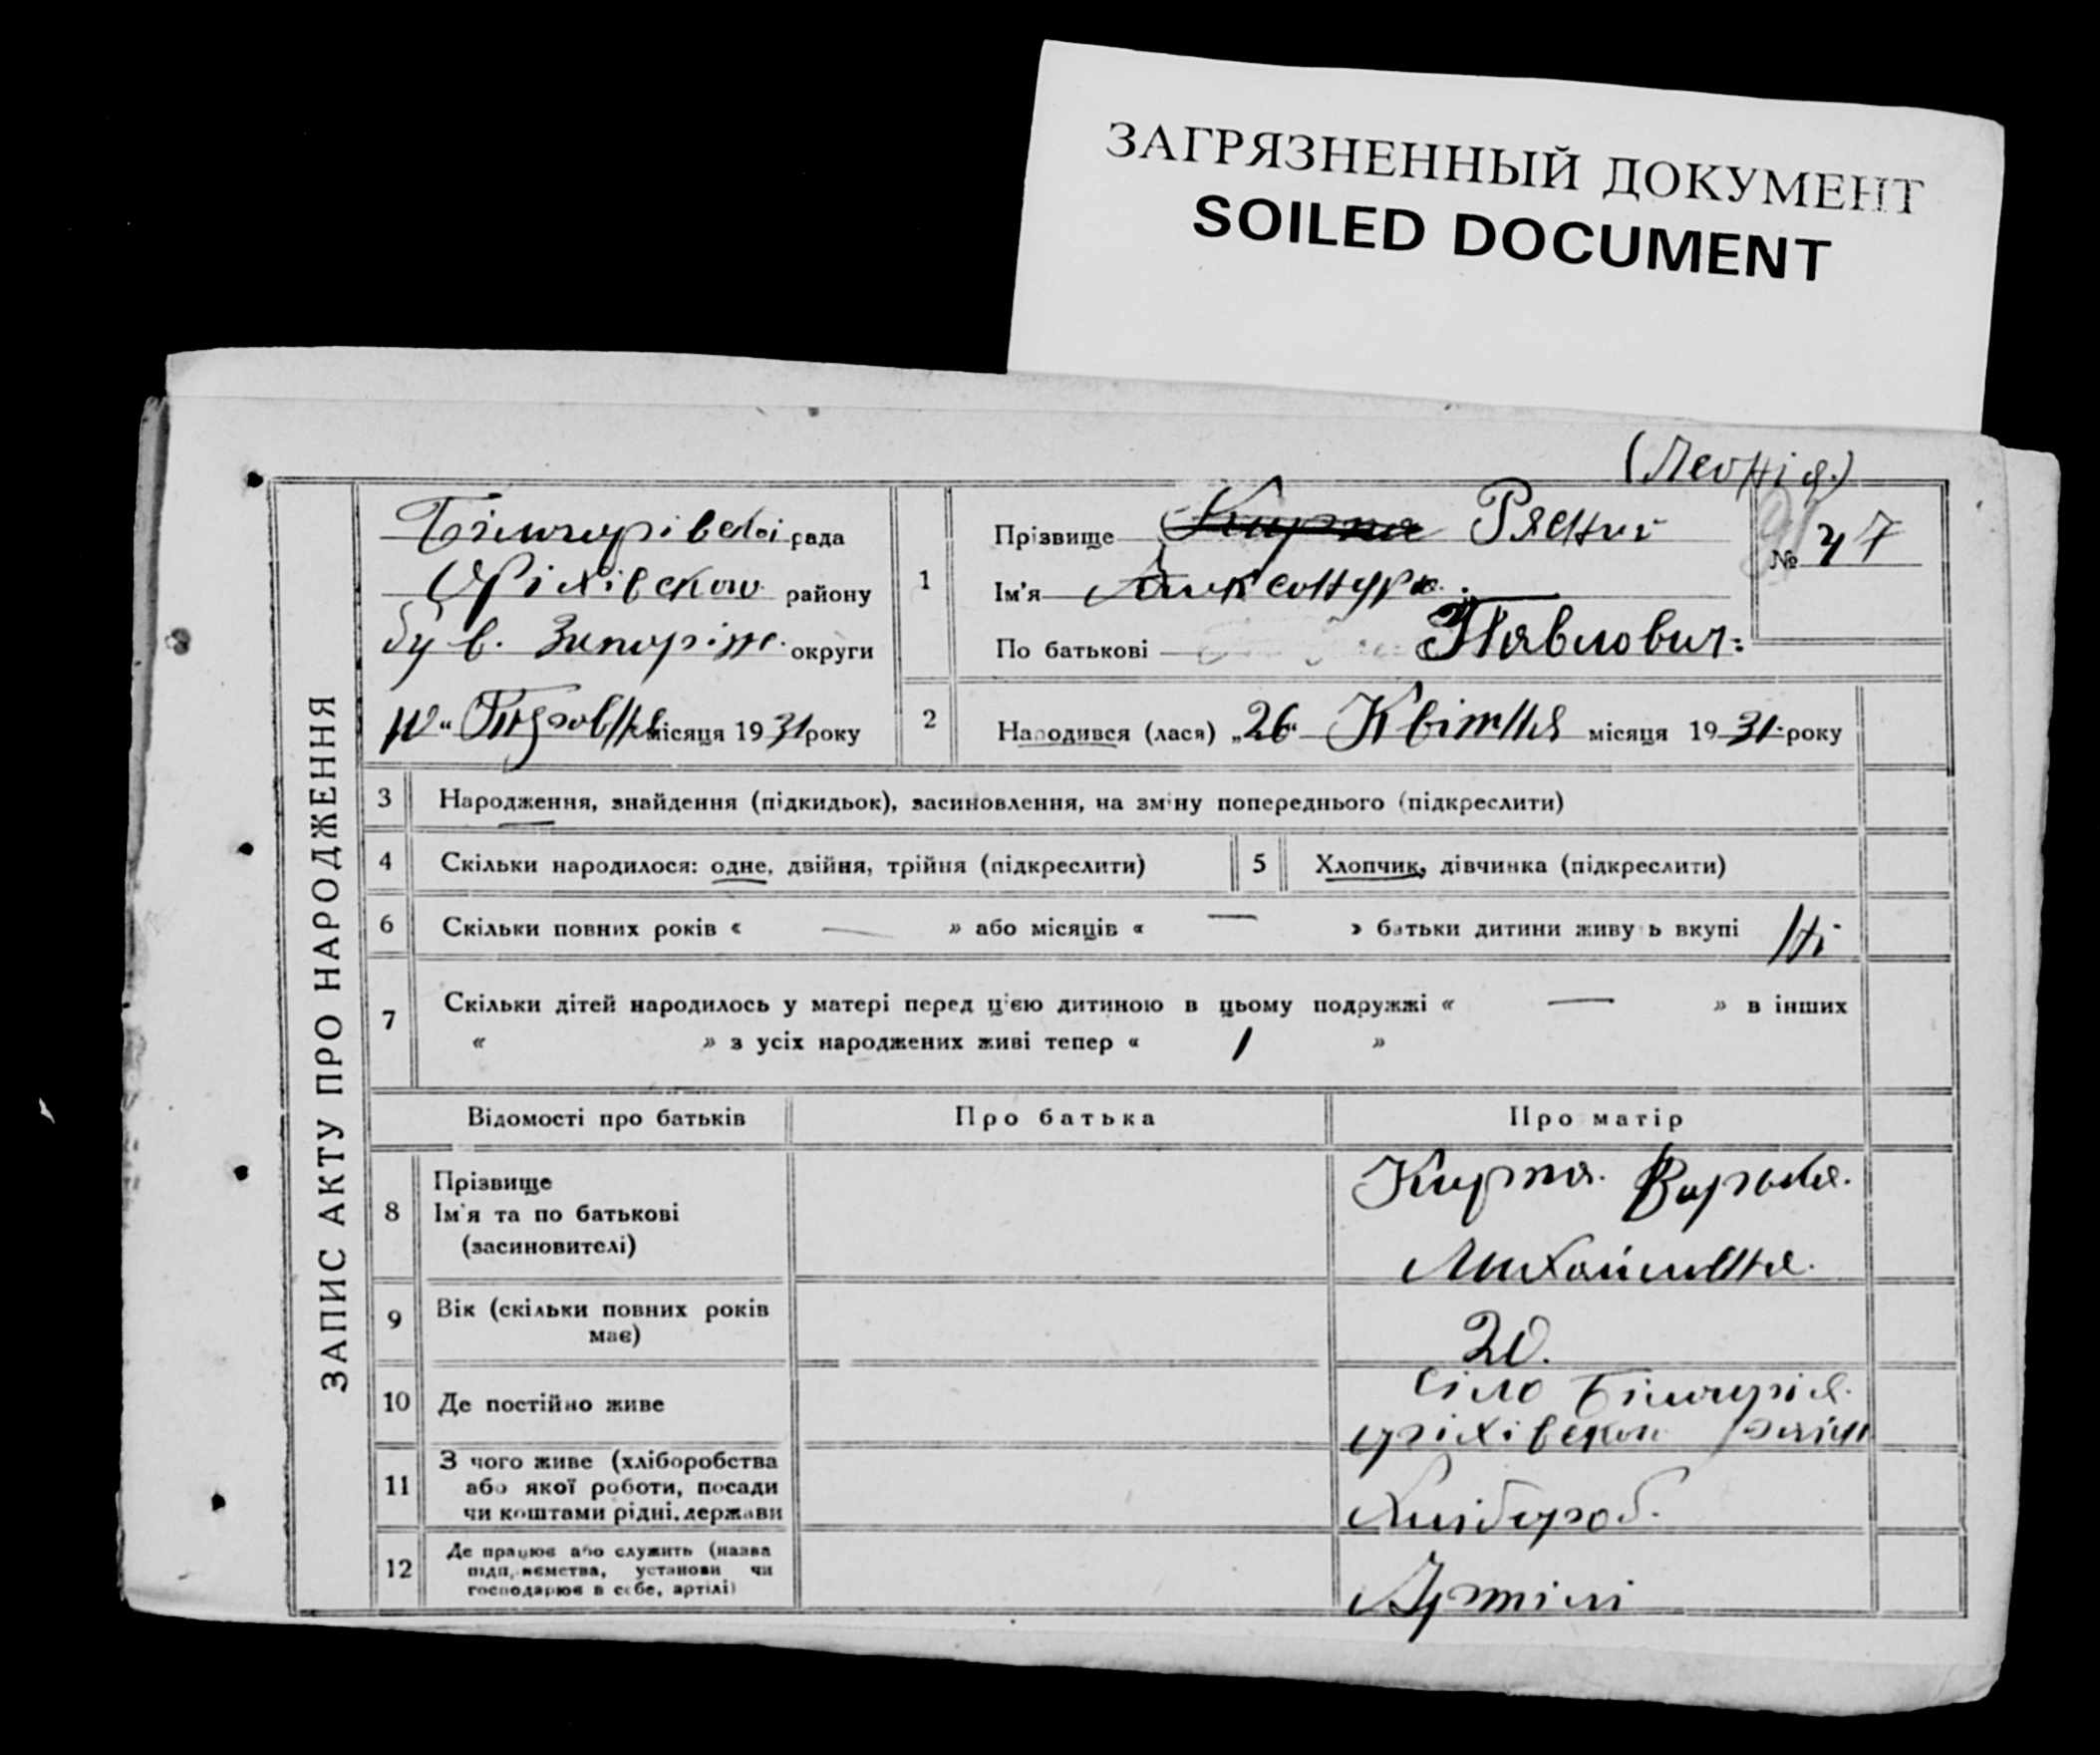 ЗАГРЯЗНЕННЫЙ ДОКУМЕНТ
SOILED DOCUMENT
(Леонід)
ЗАПИС АКТУ ПРО НАРОДЖЕННЯ
рада
району
був. Запоріж. округи
місяця 1931 року
1 Прізвище Кирпа
Ім'я
По батькові Павлович
№ 47
2 Народився (лася) „26“ Квітня місяця 1931 року
3 Народження, знайдення (підкидьок), засиновлення, на зміну попереднього (підкреслити)
4 Скільки народилося: одне, двійня, трійня (підкреслити) 5 Хлопчик, дівчинка (підкреслити)
6 Скільки повних років « — » або місяців « — » батьки дитини живуть вкупі Ні
7 Скільки дітей народилось у матері перед цією дитиною в цьому подружжі « — » в інших
« » з усіх народжених живі тепер « 1 »
Відомості про батьків Про батька Про матір
8 Прізвище
Ім'я та по батькові
(засиновителі)
Кирпа.
Михайловна.
9 Вік (скільки повних років
має)
20.
10 Де постійно живе
село
11 З чого живе (хліборобства
або якої роботи, посади
чи коштами рідні, держави
Хлібороб.
12 Де працює або служить (назва
підприємства, установи чи
господарює в себе, артілі)
Артілі